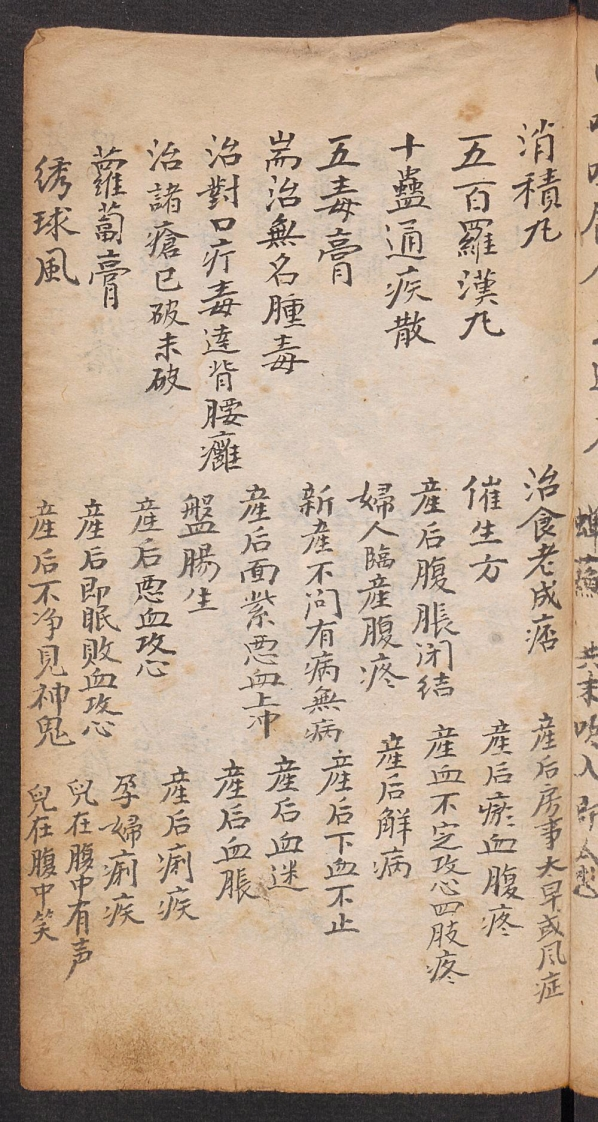 消積凡
五百羅漢凡
十蠱通疾散
五毒膏
耑治無名腫毒
治對口疔毒達背腰癱
治諸瘡已破未破
蘿蔔膏
綉球風
治食老成痞
催生方
産后腹脹闭结
婦人臨産腹疼
新産不问有病無病
産后面紫悪血上冲
盤腸生
産后悪血攻心
産后即眠败血攻心
産后不净見神鬼
産后房事太早或風症
産后瘀血腹疼
産血不定攻心四肢疼
産后觧病
産后下血不止
産后血迷
産后血脹
産后痢疾
孕婦痢疾
兒在腹中有声
兒在腹中笑